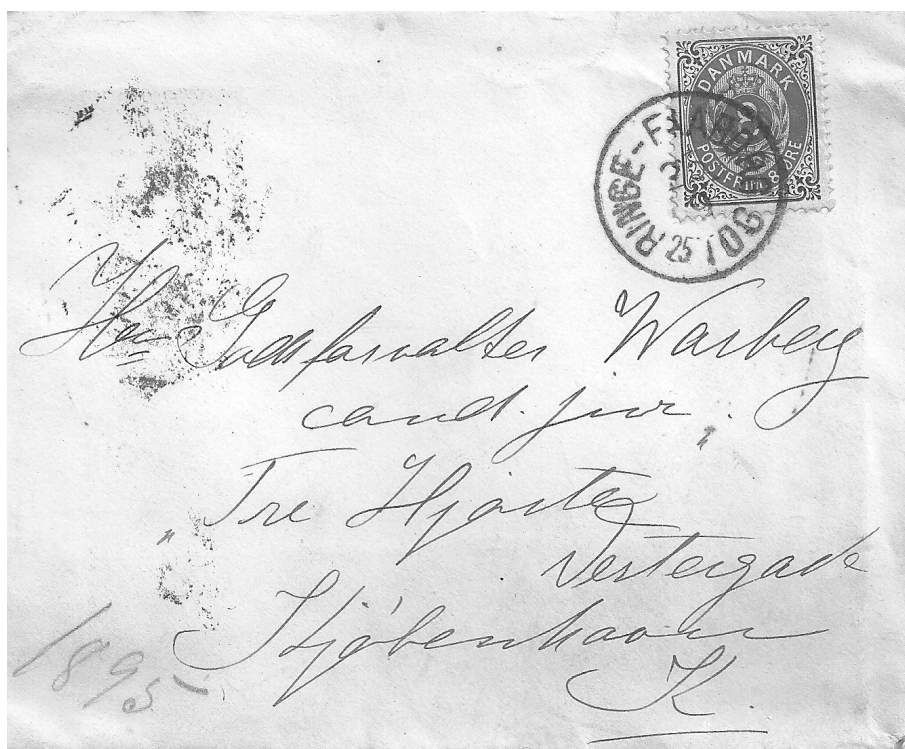 DANMARK
POSTFRIM 8 ØRE
RINGE-FAABORG
25 TOG
Hr. Godsforvalter Warberg
cand. jur.
"Tre Hjorter"
Vestergade
Kjöbenhavn
K.
1895